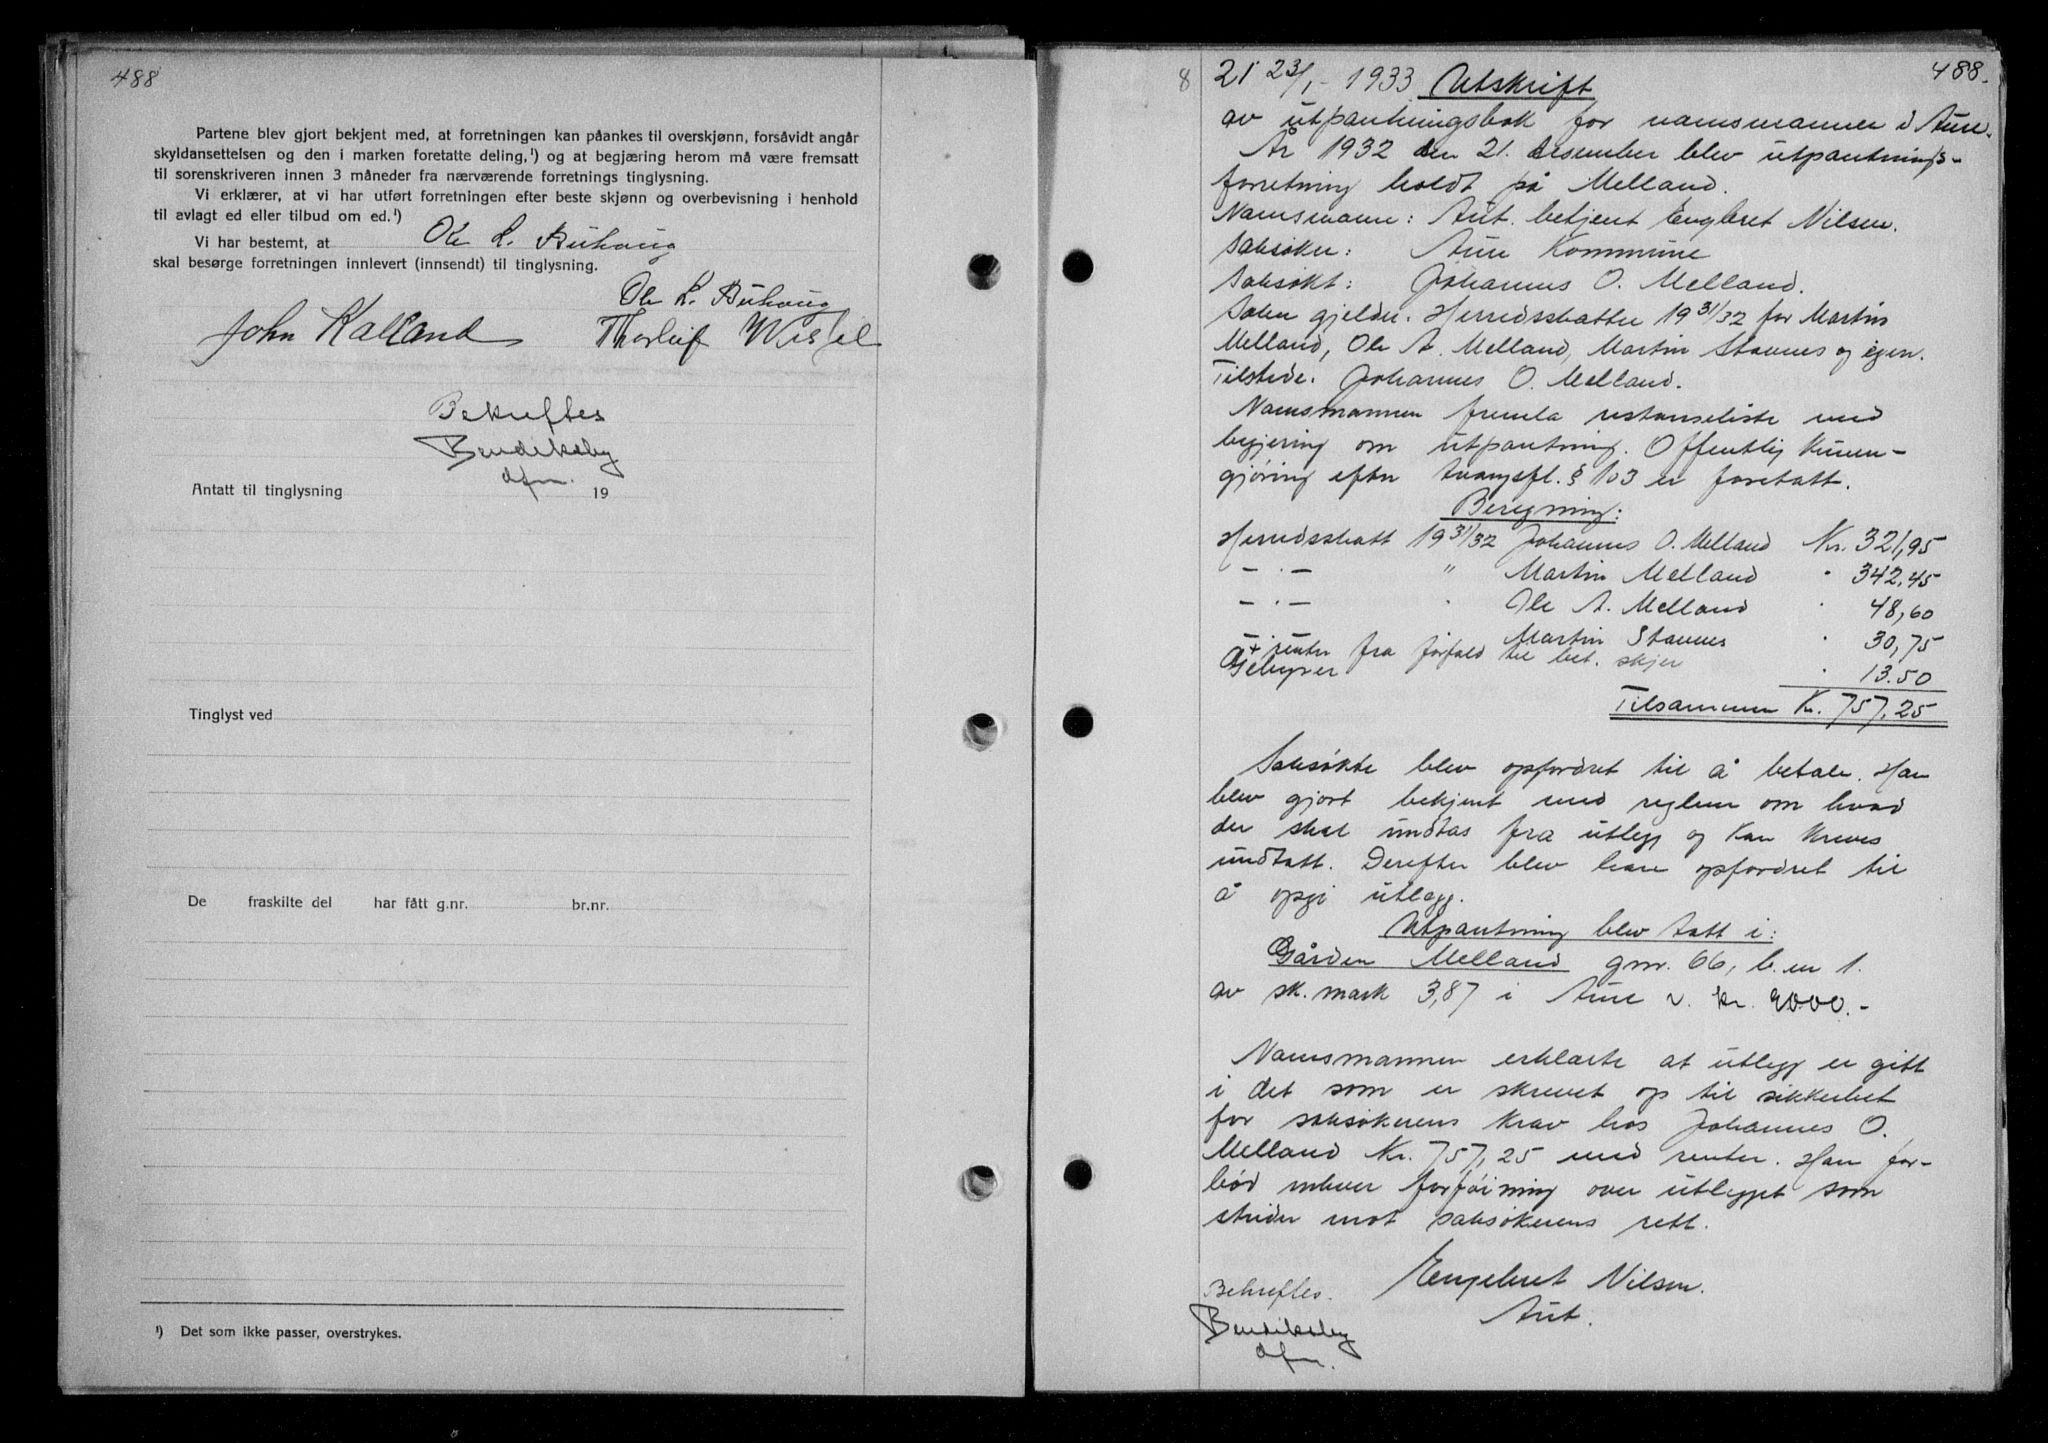 488
Partene blev gjort bekjent med, at forretningen kan påankes til overskjønn, forsåvidt angår
skyldansettelsen og den i marken foretatte deling,¹) og at begjæring herom må være fremsatt
til sorenskriveren innen 3 måneder fra nærværende forretnings tinglysning.
Vi erklærer, at vi har utført forretningen efter beste skjønn og overbevisning i henhold
til avlagt ed eller tilbud om ed.¹)
Vi har bestemt, at Ole L. Buhaug
skal besørge forretningen innlevert (innsendt) til tinglysning.
Ole L. Buhaug
John Kalland Thorleif
Bekreftes
Bendiksby
dfm.
Antatt til tinglysning 19
Tinglyst ved
De fraskilte del har fått g.nr. br.nr.
¹) Det som ikke passer, overstrykes.
488.
8 21 23/1 - 1933 Utskrift
av utpantningsbok for namsmannen i Aure.
År 1932 den 21. desember blev utpantnings-
forretning holdt på Melland.
Namsmann: Aut. betjent Engebret Nilsen.
Saksøker: Aure Kommune
Saksøkt: Johannes O. Melland.
Saken gjelder: Herredsskatter 1931/32 for Martin
Melland, Ole A. Melland, Martin Stavnes og egen.
Tilstede: Johannes O. Melland.
Namsmannen fremla restanseliste med
begjæring om utpantning. Offentlig kunn-
gjøring efter tvangsfl. § 103 er foretatt.
Beregning:
Herredsskatt 1931/32 Johannes O. Melland Kr. 321,95
- · - " Martin Melland " 342,45
- · - " Ole A. Melland " 48,60
- · - Martin Stavnes " 30,75
+ renter fra forfald til bet. skjer
Gebyrer " 13.50
Tilsammen Kr. 757,25
Saksøkte blev opfordret til å betale. Han
blev gjort bekjent med reglene om hvad
der skal undtas fra utlegg og kan kreves
undtatt. Derefter blev han opfordret til
å opgi utlegg.
Utpantning blev tatt i:
Gården Melland gnr. 66, b.nr 1.
av sk. mark 3,87 i Aure v. kr. 9000.-
Namsmannen erklærte at utlegg er gitt
i det som er skrevet op til sikkerhet
for saksøkerens krav hos Johannes O.
Melland Kr. 757,25 med renter. Han for-
bød enhver forføining over utlegget som
strider mot saksøkerens rett.
Engebret Nilsen.
Aut.
Bekreftes.
Bendiksby
dfm.